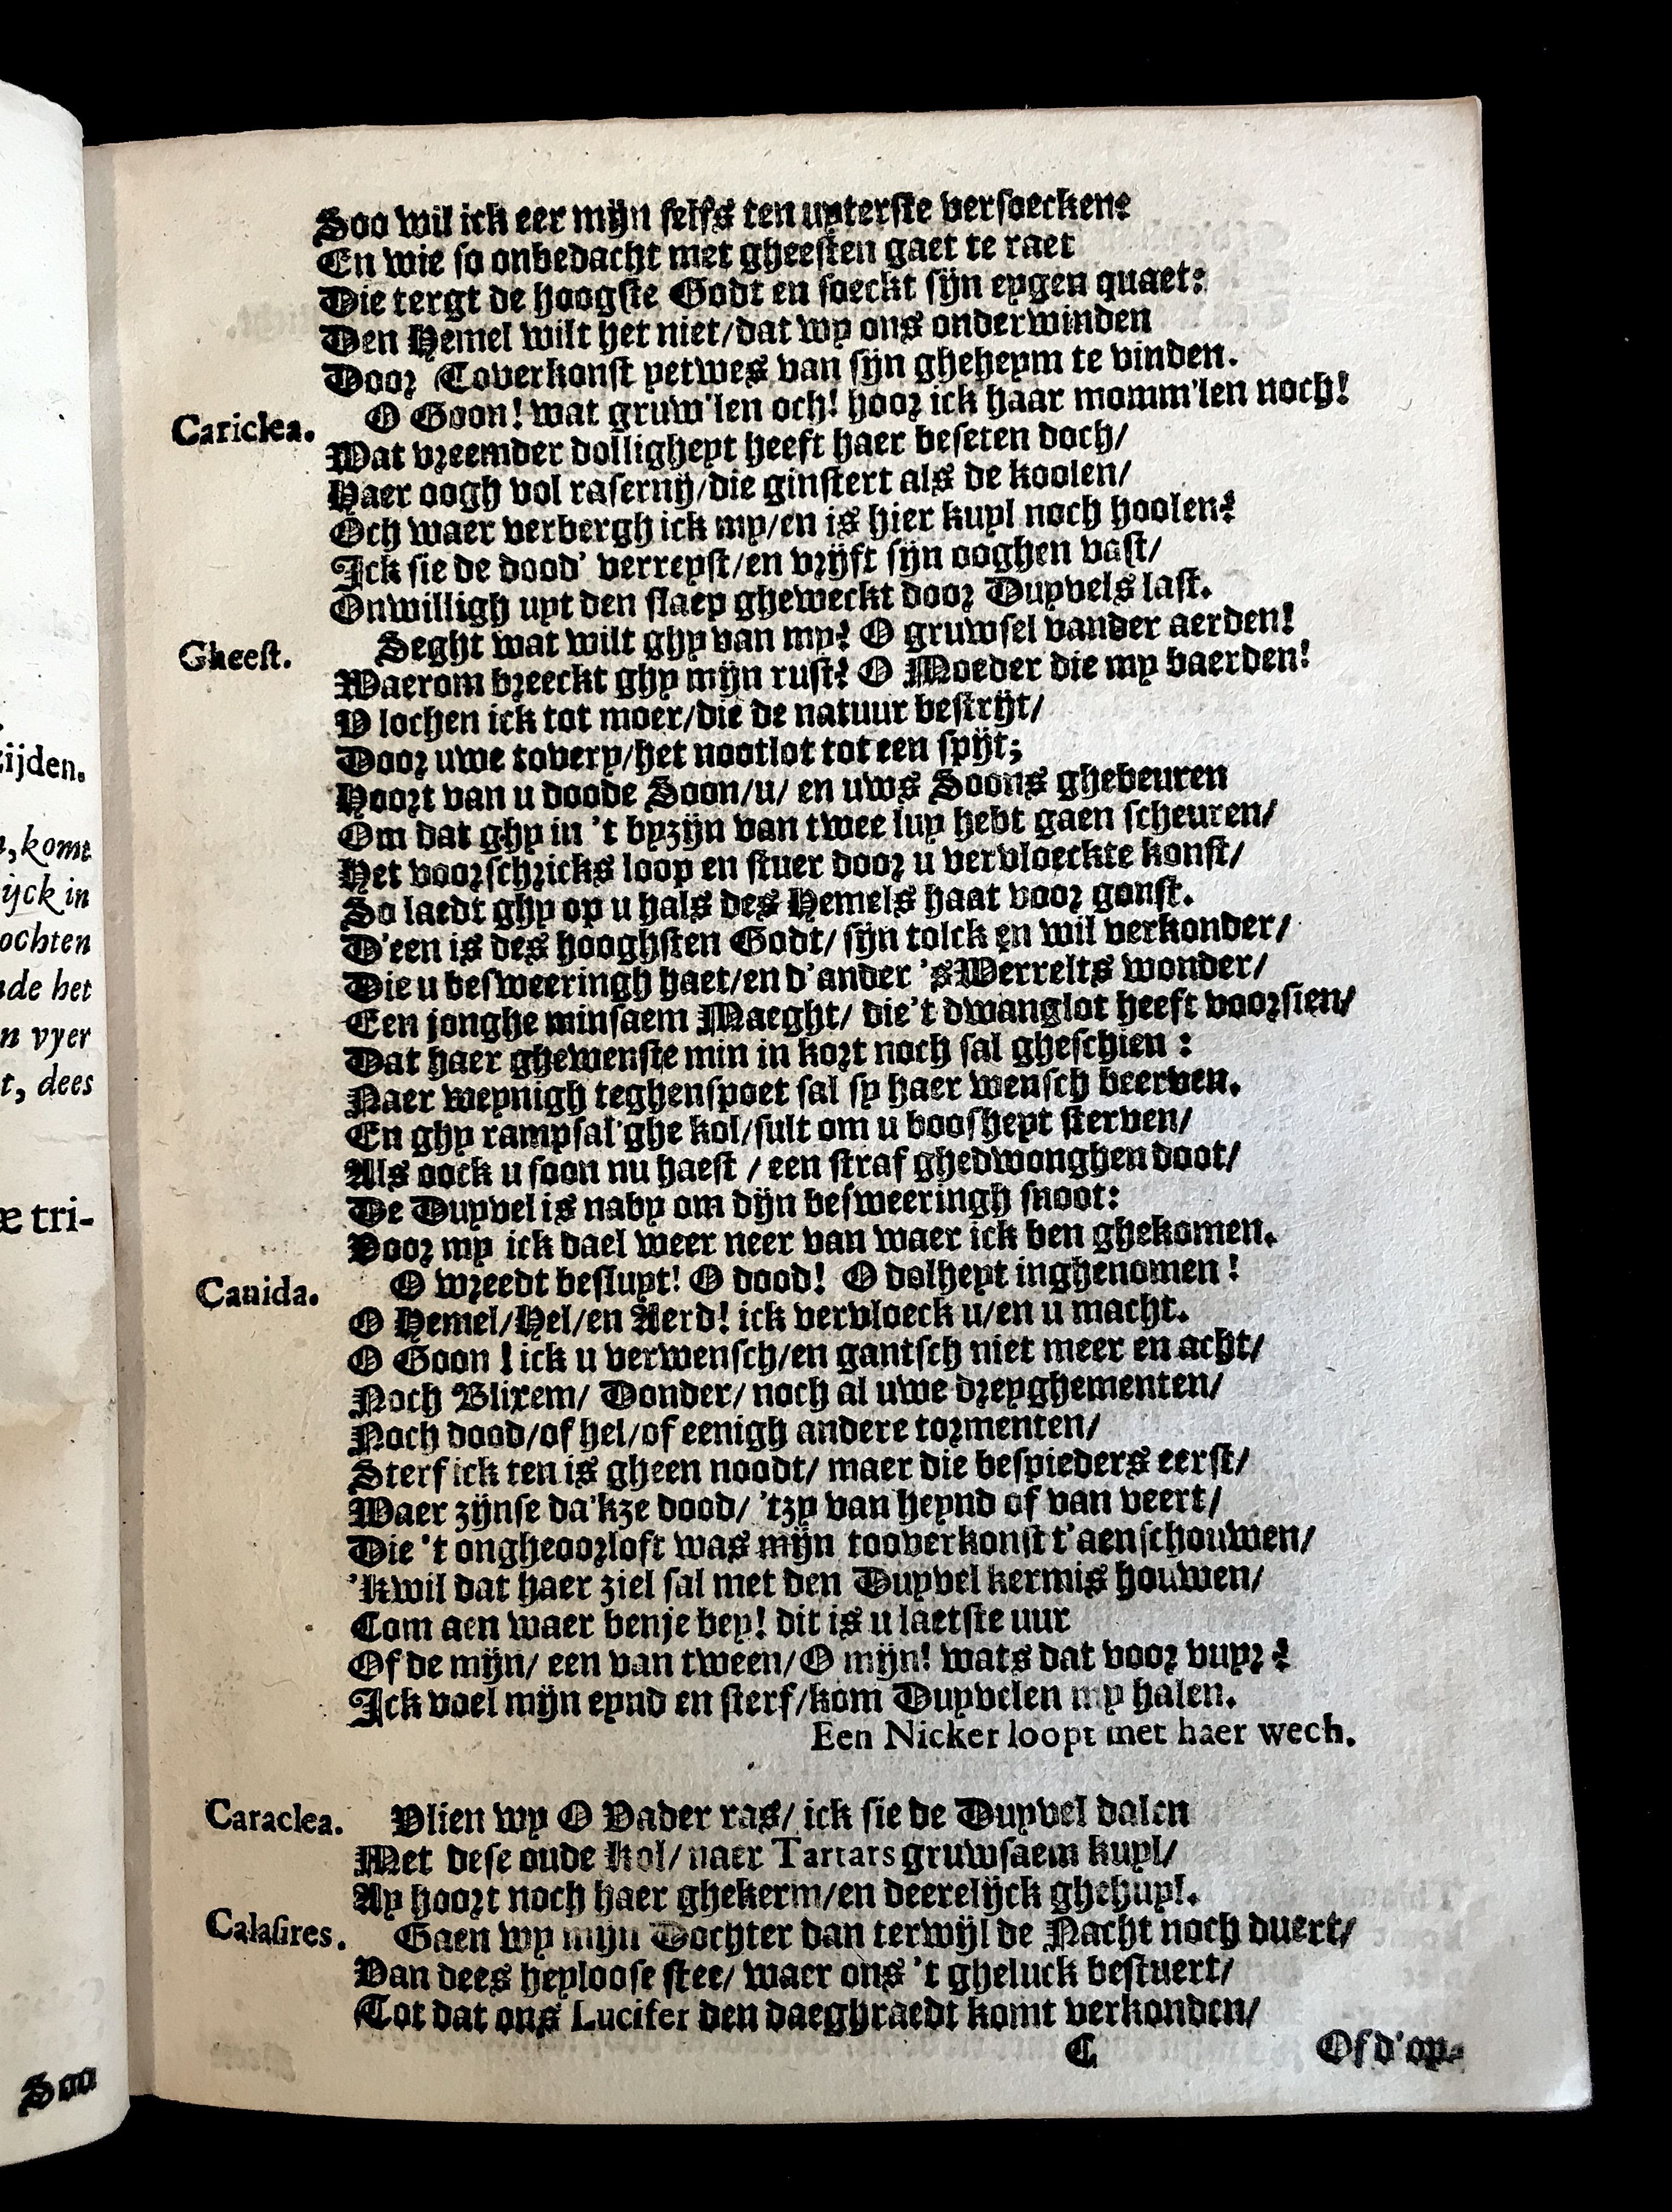 Soo wil ick eer mijn selfs ten uyterste versoecken?
En wie so onbedacht met gheesten gaet te raet
Die tergt de hoogste Godt en soeckt sijn eygen quaet:
Den Hemel wilt het niet/dat wy ons onderwinden
Door Toverkonst yetwes van sijn gheheym te vinden.
Cariclea. O Goon! wat gruw'len och! hoor ick haar momm'len noch!
Wat vreemder dolligheyt heeft haer beseten doch/
Haer oogh vol rasernij/die ginstert als de koolen/
Och waer verbergh ick my/en is hier kuyl noch hoolen?
Ick sie de dood' verreyst/en vrijft sijn ooghen vast/
Onwilligh uyt den slaep gheweckt door Duyvels last.
Gheest. Seght wat wilt ghy van my? O gruwsel vander aerden!
Waerom breeckt ghy mijn rust? O Moeder die my baerden!
V lochen ick tot moer/die de natuur bestrijt/
Door uwe tovery/het nootlot tot een spijt;
Hoort van u doode Soon/u/ en uws Soons ghebeuren
Om dat ghy in 't byzijn van twee luy hebt gaen scheuren/
Het voorschricks loop en stuer door u vervloeckte konst/
So laedt ghy op u hals des Hemels haat voor gonst.
D'een is des hooghsten Godt/ sijn tolck en wil verkonder/
Die u besweeringh haet/en d'ander 'sWerrelts wonder/
Een jonghe minsaem Maeght/ die't dwanglot heeft voorsien/
Dat haer ghewenste min in kort noch sal gheschien :
Naer weynigh teghenspoet sal sy haer wensch beerven.
En ghy rampsal'ghe kol/sult om u boosheyt sterven/
Als oock u soon nu haest / een straf ghedwonghen doot/
De Duyvel is naby om dijn besweeringh snoot:
Voor my ick dael weer neer van waer ick ben ghekomen.
Canida. O wreedt besluyt! O dood! O dolheyt inghenomen !
O Hemel/Hel/en Aerd! ick vervloeck u/en u macht.
O Goon ! ick u verwensch/en gantsch niet meer en acht/
Noch Blixem/ Donder/ noch al uwe dreyghementen/
Noch dood/of hel/of eenigh andere tormenten/
Sterf ick ten is gheen noodt/ maer die bespieders eerst/
Waer zijnse da'kze dood/ 'tzy van heynd of van veert/
Die 't ongheoorloft was mijn tooverkonst t'aenschouwen/
'Kwil dat haer ziel sal met den Duyvel kermis houwen/
Com aen waer benje bey! dit is u laetste uur
Of de mijn/ een van tween/O mijn! wats dat voor vuyr ?
Ick voel mijn eynd en sterf/kom Duyvelen my halen.
Een Nicker loopt met haer wech.
Caraclea. Vlien wy O Vader ras/ ick sie de Duyvel dalen
Met dese oude kol/ naer Tartars gruwsaem kuyl/
Ay hoort noch haer ghekerm/en deerelijck ghehuyl.
Calasires. Gaen wy mijn Dochter dan terwijl de Nacht noch duert/
Van dees heyloose stee/ waer ons 't gheluck bestuert/
Tot dat ons Lucifer den daeghraedt komt verkonden/
C Of d'op-
ijden.
,komt
ijck in
ochten
de het
n vyer
t, dees
æ tri-
Soo